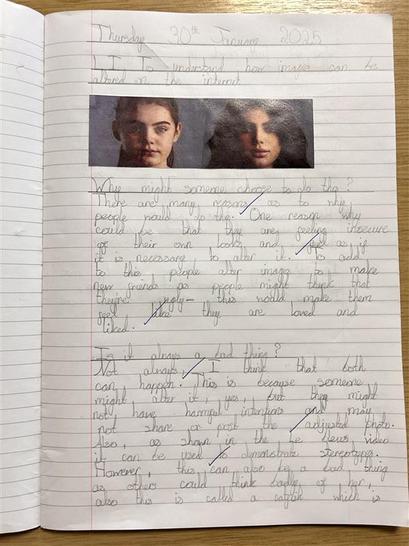 Thursday 30th January 2025
L.I To understand how images can be
altered on the internet
Why might someone choose to do this?
There are many reasons as to why
people would do this. One reason why
could be that they are feeling insecure
of their own looks and feel as if
it is necessary to alter it. To add
to this, people alter images to make
new friends as people might think that
they're ugly - this would make them
feel like they are loved and
liked.
Is it always a bad thing?
Not always, I think that both
can happen. This is because someone
might alter it, yes, but they might
not have harmful intentions and may
not share or post the adjusted photo.
Also, as shown in the news video
it can be used to demonstrate stereotypes.
However, this can also be a bad thing
as others could think badly of her,
also this is called a catfish which is